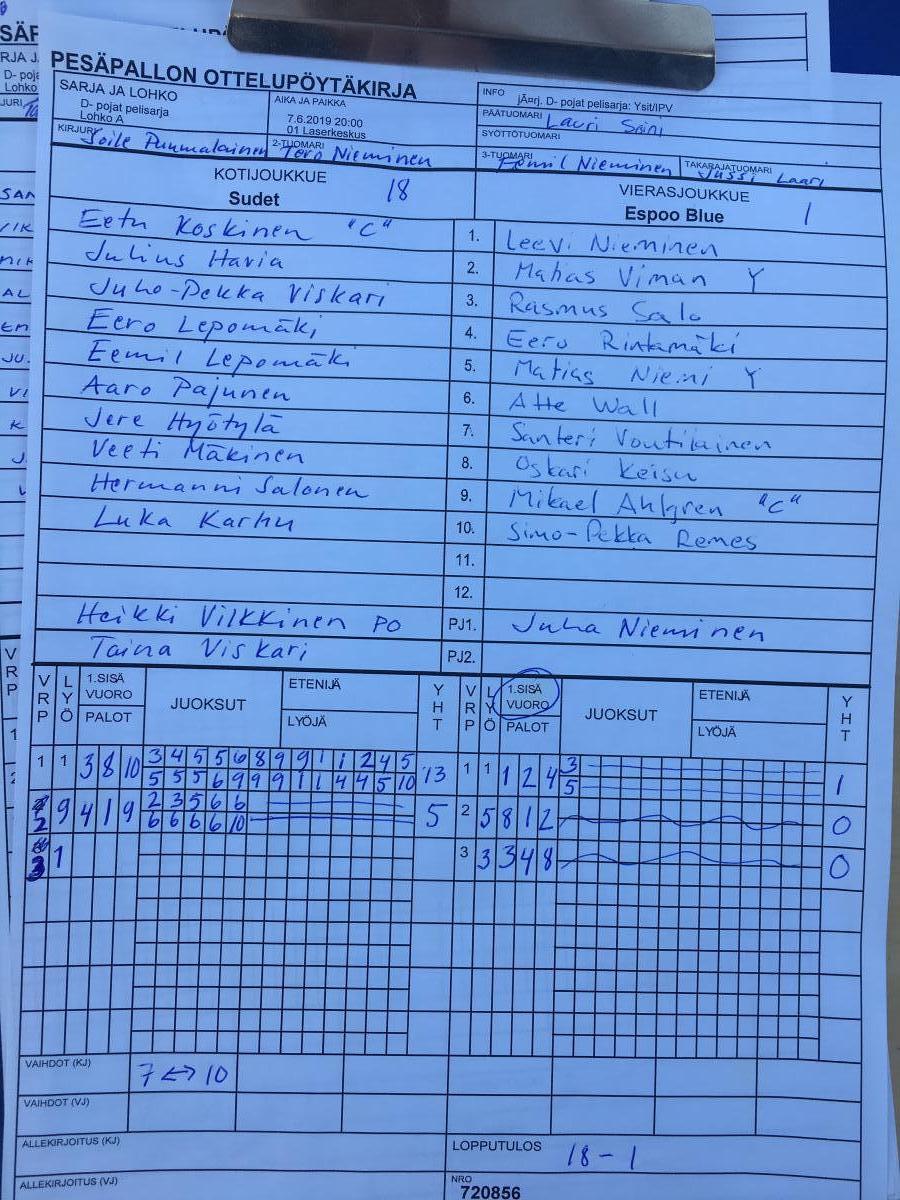 PESÄPALLON OTTELUPÖYTÄKIRJA
SARJA JA LOHKO
D- pojat pelisarja
Lohko A
AIKA JA PAIKKA
7.6.2019 20:00
01 Laserkeskus
INFO
jÄ¤rj. D- pojat pelisarja: Ysit/IPV
PÄÄTUOMARI Lauri Saini
SYÖTTÖTUOMARI
KIRJURI Soile Puumalainen
2-TUOMARI Tero Nieminen
3-TUOMARI Eemil Nieminen
TAKARAJATUOMARI Jussi Laari
KOTIJOUKKUE
Sudet 18
VIERASJOUKKUE
Espoo Blue 1
Eetu Koskinen "C" 1. Leevi Nieminen
Julius Havia 2. Matias Viman Y
Juho-Pekka Viskari 3. Rasmus Salo
Eero Lepomäki 4. Eero Rintamäki
Eemil Lepomäki 5. Matias Niemi Y
Aaro Pajunen 6. Atte Wall
Jere Hyötylä 7. Santeri Voutilainen
Veeti Mäkinen 8. Oskari Keisu
Hermanni Salonen 9. Mikael Ahlgren "C"
Luka Karhu 10. Simo-Pekka Remes
11.
12.
Heikki Vilkkinen PO PJ1. Juha Nieminen
Taina Viskari PJ2.
VRP LYÖ 1.SISÄ VUORO PALOT JUOKSUT ETENIJÄ LYÖJÄ YHT VRP LYÖ 1.SISÄ VUORO PALOT JUOKSUT ETENIJÄ LYÖJÄ YHT
3 4 5 5 6 8 9 9 1 1 2 4 5 3
1 1 3 8 10 13 1 1 1 2 4 1
5 5 5 6 9 9 9 1 1 4 4 5 10 5
2 3 5 6 6
2 9 4 1 9 5 2 5 8 1 2 0
6 6 6 6 10
3 1 3 3 3 4 8 0
VAIHDOT (KJ) 7 <-> 10
VAIHDOT (VJ)
ALLEKIRJOITUS (KJ)
LOPPUTULOS 18 - 1
ALLEKIRJOITUS (VJ)
NRO
720856